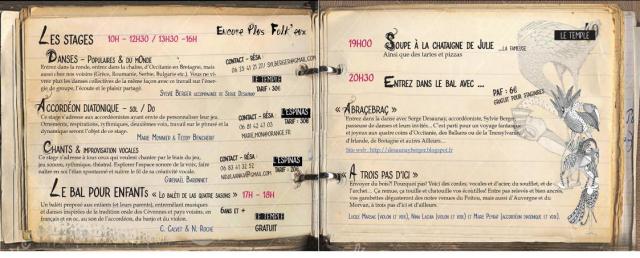 Encore Plus Folk'eux
Les stages 10h - 12h30 / 13h30 -16h
Danses - Populaires & du mOnde
Entrez dans la ronde, entrez dans la chaîne, d'Occitanie en Bretagne, mais
aussi chez nos voisins (Grèce, Roumanie, Serbie, Bulgarie etc.). Vous ne vi-
vrez plus les danses collectives de la même façon avec ce travail sur l'éner-
gie de groupe, l'écoute et le plaisir partagé.
Sylvie Berger accompagnée de Serge Desaunay
contact - résa :
Le Temple
tarif : 30€
Accordéon diatonique - sol / Do
Ce stage s'adresse aux accordéonistes ayant envie de personnaliser leur jeu.
Ornements, respirations, rythmiques, deuxièmes voix, travail sur le phrasé et la
dynamique seront l'objet de ce stage.
Marie Monnier & Teddy
contact - résa :
06 81 42 47 03
L'Espinas
tarif : 30€
Chants & improvisation vocales
Ce stage s'adresse à tous ceux qui veulent chanter par le biais du jeu,
jeu sonore, rythmique, théâtral. Explorer l'espace sonore de la voix, faire
naître en soi l'élan spontané et naître le fil de sa créativité.
Gwenaël Baronnet
contact - résa :
06 83 41 32 52
L'Espinas
Le bal pour enfants « Lo balèti de las quatre sasons » 17h - 18h
Un balèti proposé aux enfants (et leurs parents), entremêlant musiques
et danses inspirées de la tradition orale des Cévennes et pays voisins, en
français et en oc, au son de l'accordéon, du banjo et du violon.
C. Calvet & N. Roche
6ans et +
Le Temple
gratuit
Le Temple
19h00 Soupe à la chataigne de Julie ...la fameuse
Ainsi que des tartes et pizzas
20h30 Entrez dans le bal avec ...
PAF : 6€
gratuit pour stagiaires
« Abraçebraç »
Entrez dans la danse avec Serge Desaunay, accordéoniste, Sylvie Berger
passeuse de danses et leurs invités... C'est parti pour un voyage fantaisiste
et joyeux aux quatre coins d'Occitanie, des Balkans ou de la Transylvanie,
d'Irlande, de Bretagne et autres Ailleurs...
Site web : http://desaunayberger.blogspot.fr
« A trois pas d'ici »
Envoyez du bois!! Pourquoi pas! Voici des cordes, vocales et d'acier; du soufflet, et de
l'archet... Ça remue, ça touille et chatouille vos écoutilles! Entre pas retenus et bien ancrés,
vos gambettes dégusteront des notes venues du Poitou, mais aussi d'Auvergne et du
Morvan, à trois pas d'ici et d'ailleurs.